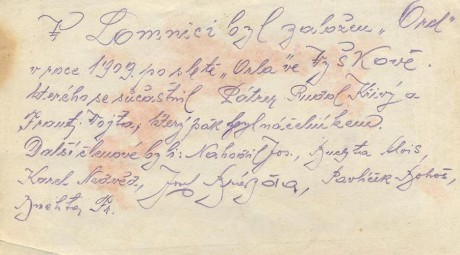 V Lomnici byl založen „Orel"
v roce 1909. po sletě „Orla" ve Vyškově.
kterého se súčastnil Páter Rudol. Křivý a
Frant. Vojta, který pak byl náčelníkem.
Další členove byli: Nahodil Jos., Kuchta Alois,
Karel Nedvěd, Josef, Pavlíček Bohoš,
Kuchta Fr.